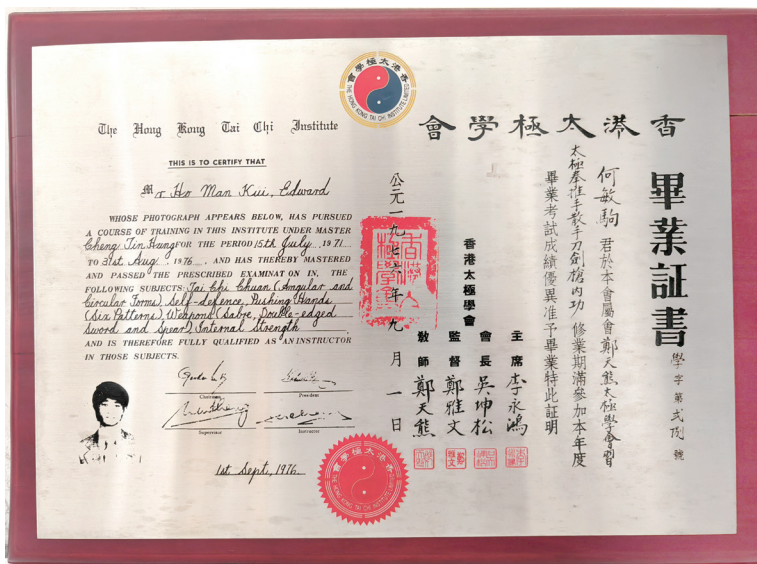 會學極太港香
THE HONG KONG TAI CHI INSTITUTE LIMITED
The Hong Kong Tai Chi Institute
THIS IS TO CERTIFY THAT
Mr Ho Man Kui, Edward
WHOSE PHOTOGRAPH APPEARS BELOW, HAS PURSUED
A COURSE OF TRAINING IN THIS INSTITUTE UNDER MASTER
Cheng Tin Hung FOR THE PERIOD 15th July 1971
TO 31st Aug 1976 AND HAS THEREBY MASTERED
AND PASSED THE PRESCRIBED EXAMINATION IN, THE
FOLLOWING SUBJECTS: Tai Chi Chuan (Angular and
Circular Forms), Self-defence, Pushing Hands
(Six Patterns), Weapons (Sabre, Double-edged
Sword and Spear), Internal Strength
AND IS THEREFORE FULLY QUALIFIED AS AN INSTRUCTOR
IN THOSE SUBJECTS.
Chairman
President
Supervisor
Instructor
1st Sept, 1976
會學極太港香
THE HONG KONG TAI CHI INSTITUTE
會學極太港香
畢業証書
學字第弍附號
何敏駒君於本會屬會鄭天熊太極學會習
太極拳推手散手刀劍槍內功修業期滿參加本年度
畢業考試成績優異准予畢業特此証明
香港太極學會
主席李永鴻
會長吳坤松
監督鄭雅文
教師鄭天熊
公元一九七六年九月一日
香港太極學會